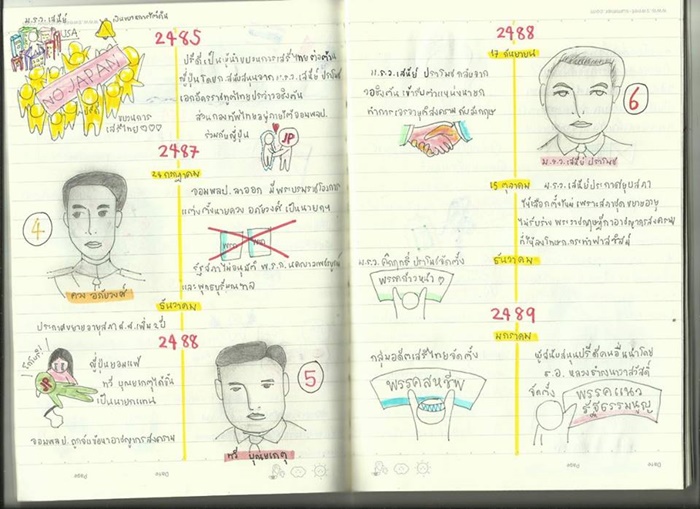 ม.ร.ว.เสนีย์
USA
NO JAPAN
ปรีดี
ขบวนการ
เสรีไทย
2485
ปรีดีเป็นผู้นำขบวนการเสรีไทยต่อต้าน
ญี่ปุ่นโดยการสนับสนุนจาก ม.ร.ว.เสนีย์ ปราโมช
เอกอัครราชทูตไทยประจำวอชิงตัน
ส่วนกองทัพไทยอยู่ภายใต้จอมพลป.
ร่วมกับญี่ปุ่น
JP
2487
24 กรกฎาคม
จอมพลป. ลาออก มีพระบรมราชโองการ
แต่งตั้งนายควง อภัยวงศ์ เป็นนายกฯ
4
ควง อภัยวงศ์
พรก
พรก
รัฐสภาไม่อนุมัติ พ.ร.ก. นครบาลเพชรบูรณ์
และพุทธบุรีมณฑล
ธันวาคม
ประกาศขยายอายุสภา ส.ส. เพิ่ม 2 ปี
2488
ญี่ปุ่นยอมแพ้
ทวี บุณยเกตุได้ขึ้น
เป็นนายกแทน
JP
จอมพลป. ถูกจับข้อหาอาชญากรสงคราม
5
ทวี บุณยเกตุ
Date
Page
2488
17 กันยายน
ม.ร.ว.เสนีย์ ปราโมช กลับจาก
วอชิงตัน เข้ารับตำแหน่งนายก
ทำการเจรจายุติสงครามกับอังกฤษ
6
ม.ร.ว.เสนีย์ ปราโมช
15 ตุลาคม
ม.ร.ว.เสนีย์ประกาศยุบสภา
ให้เลือกตั้งใหม่ เพราะสภาชุดขยายอายุ
ไม่รับร่าง พระราชบัญญัติอาชญากรสงคราม
ธันวาคม
ม.ร.ว. คึกฤทธิ์ ปราโมชจัดตั้ง
พรรคก้าวหน้า
2489
มกราคม
กลุ่มอดีตเสรีไทยจัดตั้ง
พรรคสหชีพ
ผู้สนับสนุนปรีดีคนอื่นนำโดย
ร.อ. หลวงธำรงนาวาสวัสดิ์
จัดตั้ง
พรรคแนว
รัฐธรรมนูญ
Date
Page